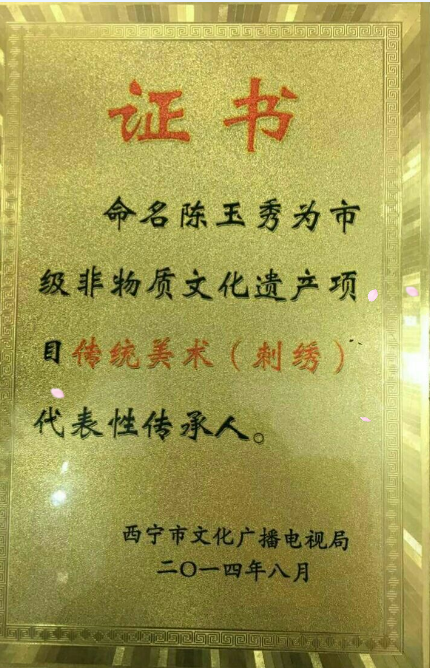 证书
命名陈玉秀为市
级非物质文化遗产项
目传统美术（刺绣）
代表性传承人。
西宁市文化广播电视局
二〇一四年八月